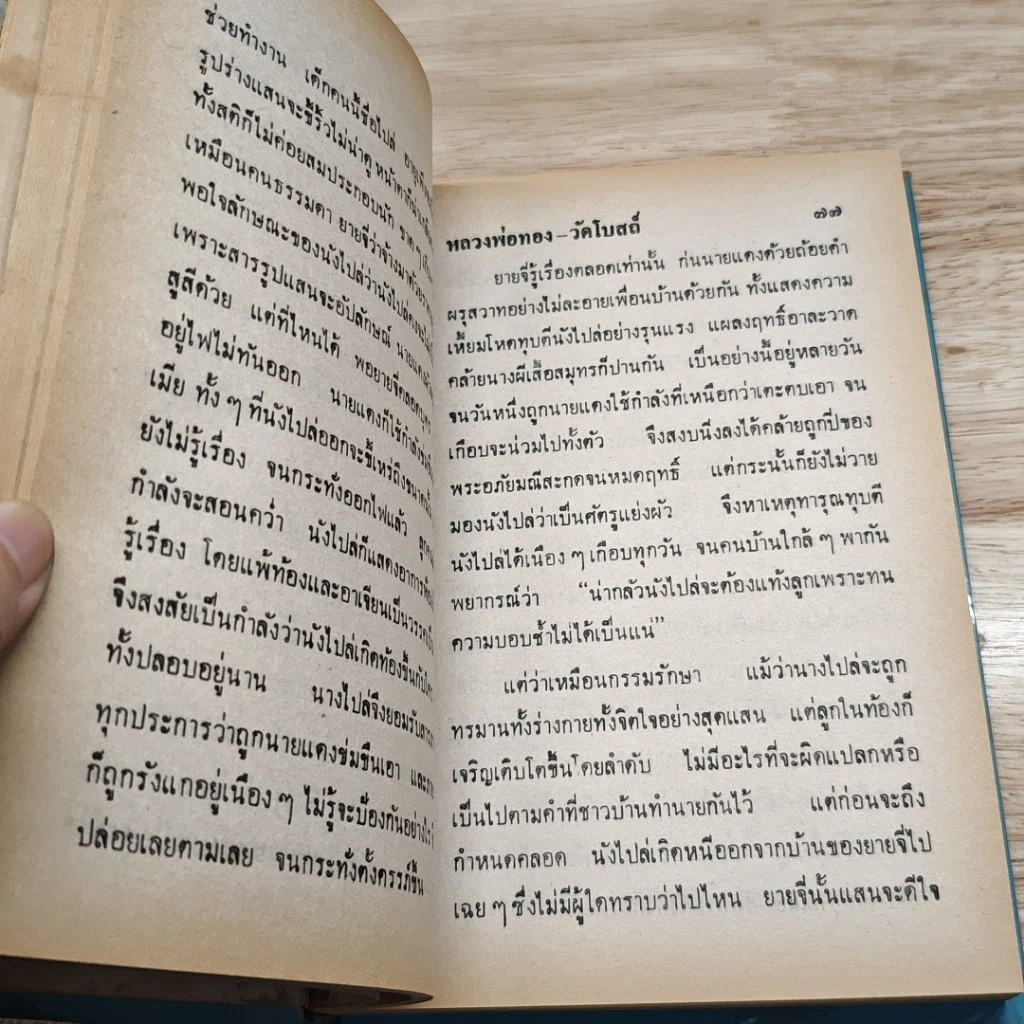 ช่วยทำงาน เด็กคนนี้ชื่อไปล่
รูปร่างแสนจะขี้ริ้วไม่น่าดู หน้าตาก็น่าเกลียด
ทั้งสติก็ไม่ค่อยสมประกอบนัก ขาด ๆ
เหมือนคนธรรมดา ยายจีว่าจ้างมาด้วย
พอใจลักษณะของนังไปล่ว่านังไปล่คงจะ
เพราะสารรูปแสนจะอัปลักษณ์ นายแดง
สูสีด้วย แต่ที่ไหนได้ พอยายจีคลอดบุตร
อยู่ไฟไม่ทันออก นายแดงก็ใช้กำลัง
เมีย ทั้ง ๆ ที่นังไปล่ออกจะขี้เหร่ถึงขนาด
ยังไม่รู้เรื่อง จนกระทั่งออกไฟแล้ว
กำลังจะสอนคว่ำ นังไปล่ก็แสดงอาการ
รู้เรื่อง โดยแพ้ท้องและอาเจียนเป็น
จึงสงสัยเป็นกำลังว่านังไปล่เกิดท้องขึ้นกับใคร
ทั้งปลอบอยู่นาน นางไปล่จึงยอมรับ
ทุกประการว่าถูกนายแดงข่มขืนเอา และ
ก็ถูกรังแกอยู่เนือง ๆ ไม่รู้จะป้องกันอย่างไร
ปล่อยเลยตามเลย จนกระทั่งตั้งครรภ์ขึ้น
หลวงพ่อทอง – วัดโบสถ์ ๗๗
ยายจีรู้เรื่องตลอดเท่านั้น ก่นนายแดงด้วยถ้อยคำ
ผรุสวาทอย่างไม่ละอายเพื่อนบ้านด้วยกัน ทั้งแสดงความ
เหี้ยมโหดทุบตีนังไปล่อย่างรุนแรง แผลงฤทธิ์อาละวาด
คล้ายนางผีเสื้อสมุทรก็ปานกัน เป็นอย่างนี้อยู่หลายวัน
จนวันหนึ่งถูกนายแดงใช้กำลังที่เหนือกว่าเตะตบเอา จน
เกือบจะน่วมไปทั้งตัว จึงสงบนิ่งลงได้คล้ายถูกปี่ของ
พระอภัยมณีสะกดจนหมดฤทธิ์ แต่กระนั้นก็ยังไม่วาย
มองนังไปล่ว่าเป็นศัตรูแย่งผัว จึงหาเหตุทารุณทุบตี
นังไปล่ได้เนือง ๆ เกือบทุกวัน จนคนบ้านใกล้ ๆ พากัน
พยากรณ์ว่า “น่ากลัวนังไปล่จะต้องแท้งลูกเพราะทน
ความบอบช้ำไม่ได้เป็นแน่”
แต่ว่าเหมือนกรรมรักษา แม้ว่านางไปล่จะถูก
ทรมานทั้งร่างกายทั้งจิตใจอย่างสุดแสน แต่ลูกในท้องก็
เจริญเติบโตขึ้นโดยลำดับ ไม่มีอะไรที่จะผิดแปลกหรือ
เป็นไปตามคำที่ชาวบ้านทำนายกันไว้ แต่ก่อนจะถึง
กำหนดคลอด นังไปล่เกิดหนีออกจากบ้านของยายจีไป
เฉย ๆ ซึ่งไม่มีผู้ใดทราบว่าไปไหน ยายจีนั้นแสนจะดีใจ